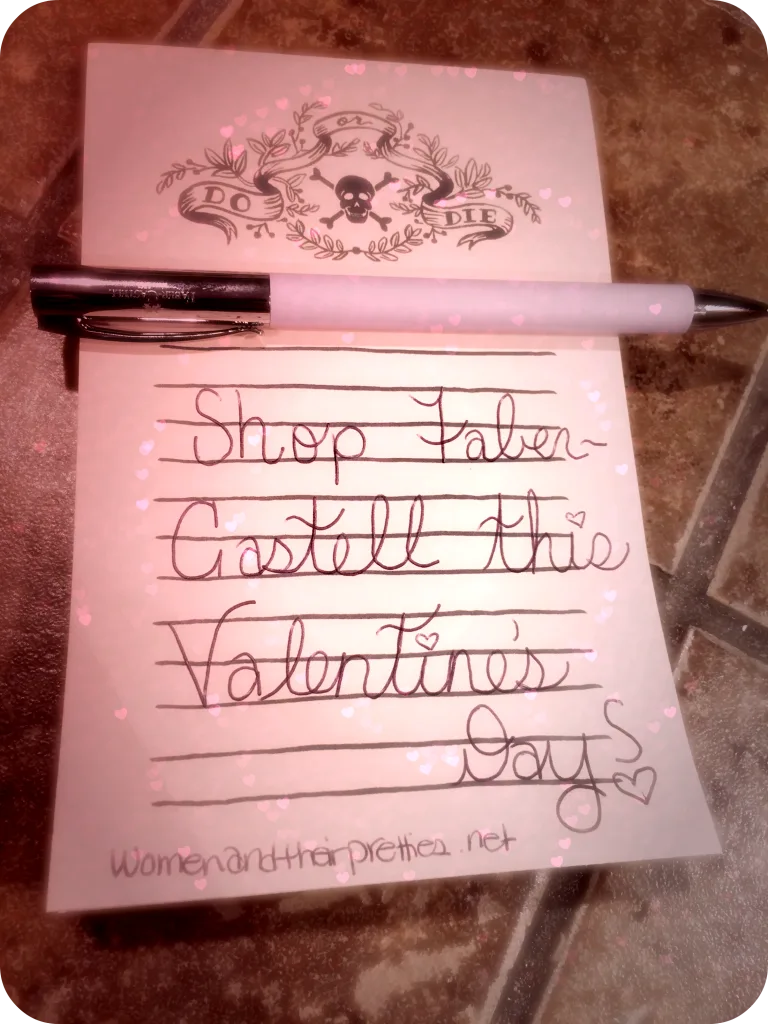 or
DO DIE
Shop Faber-
Castell this
Valentine's
Day
womenandtheirpretties.net